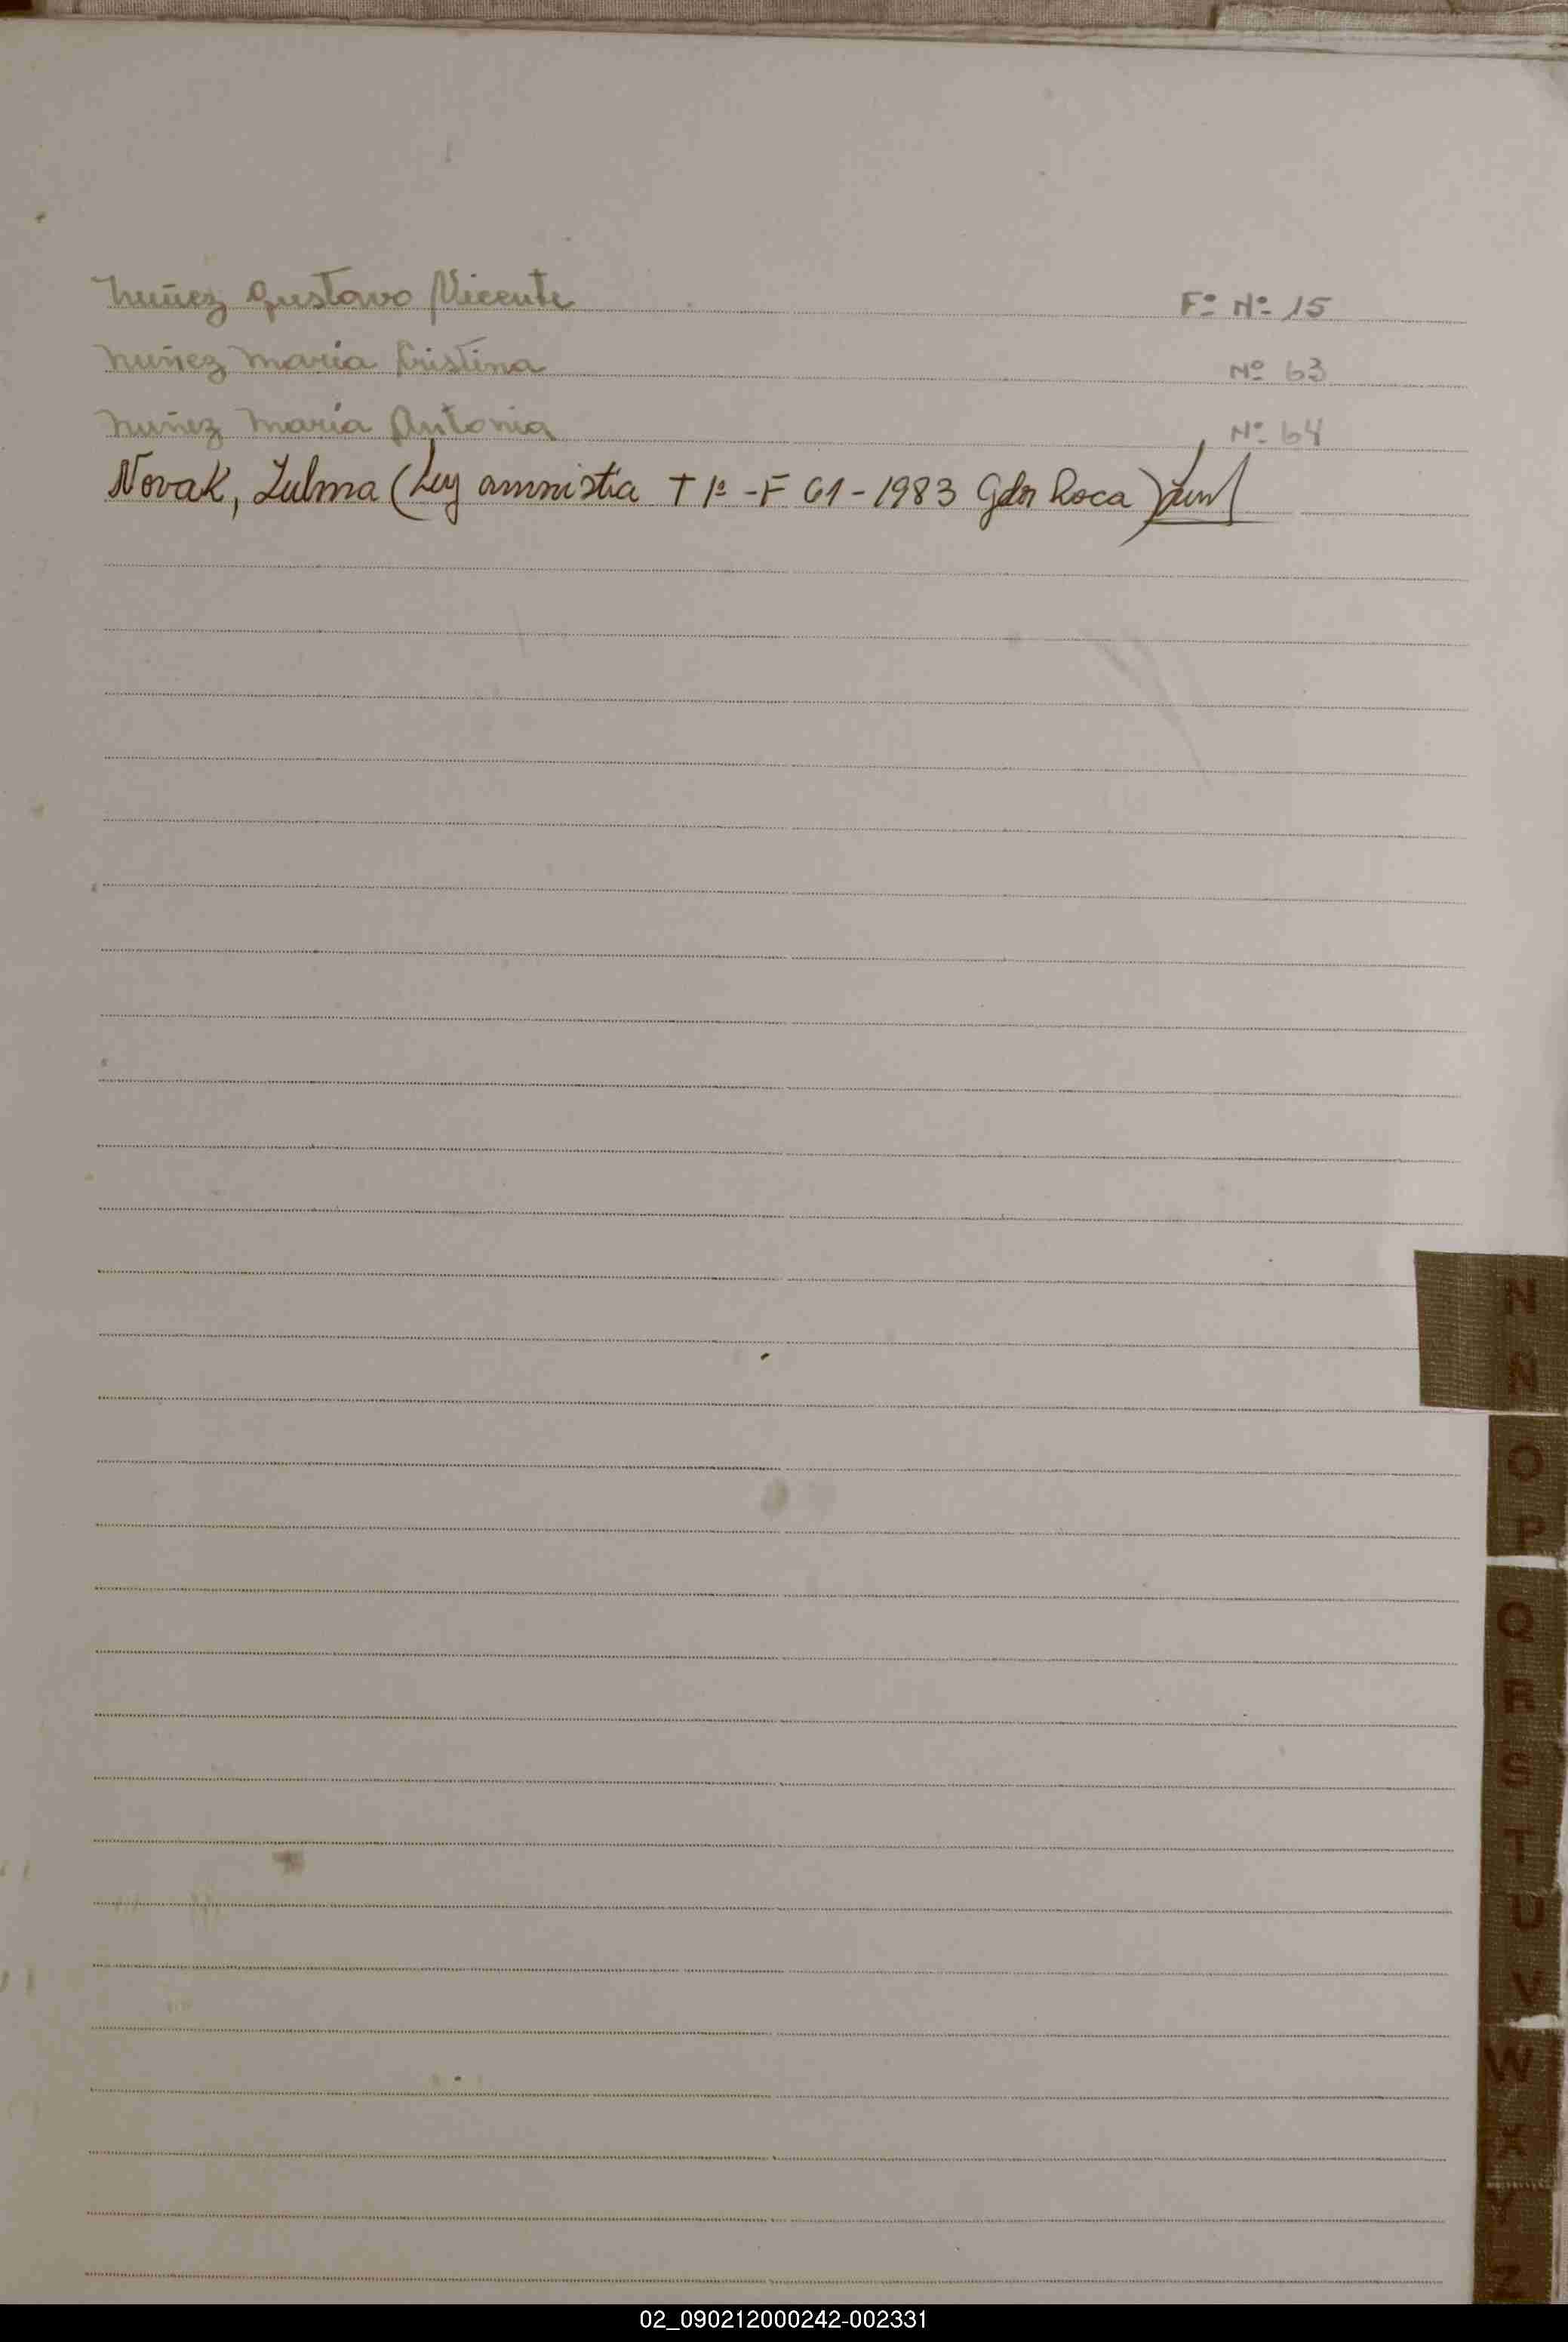 Nuñez Gustavo Vicente F° N° 15
Nuñez Maria Cristina N° 63
Nuñez Maria Antonia N° 64
Novak, Zulma (Ley amnistía T 1º - F 61 - 1983 Gdor Roca)
N
Ñ
O
P
Q
R
S
T
U
V
W
X
Y
Z
02_090212000242-002331